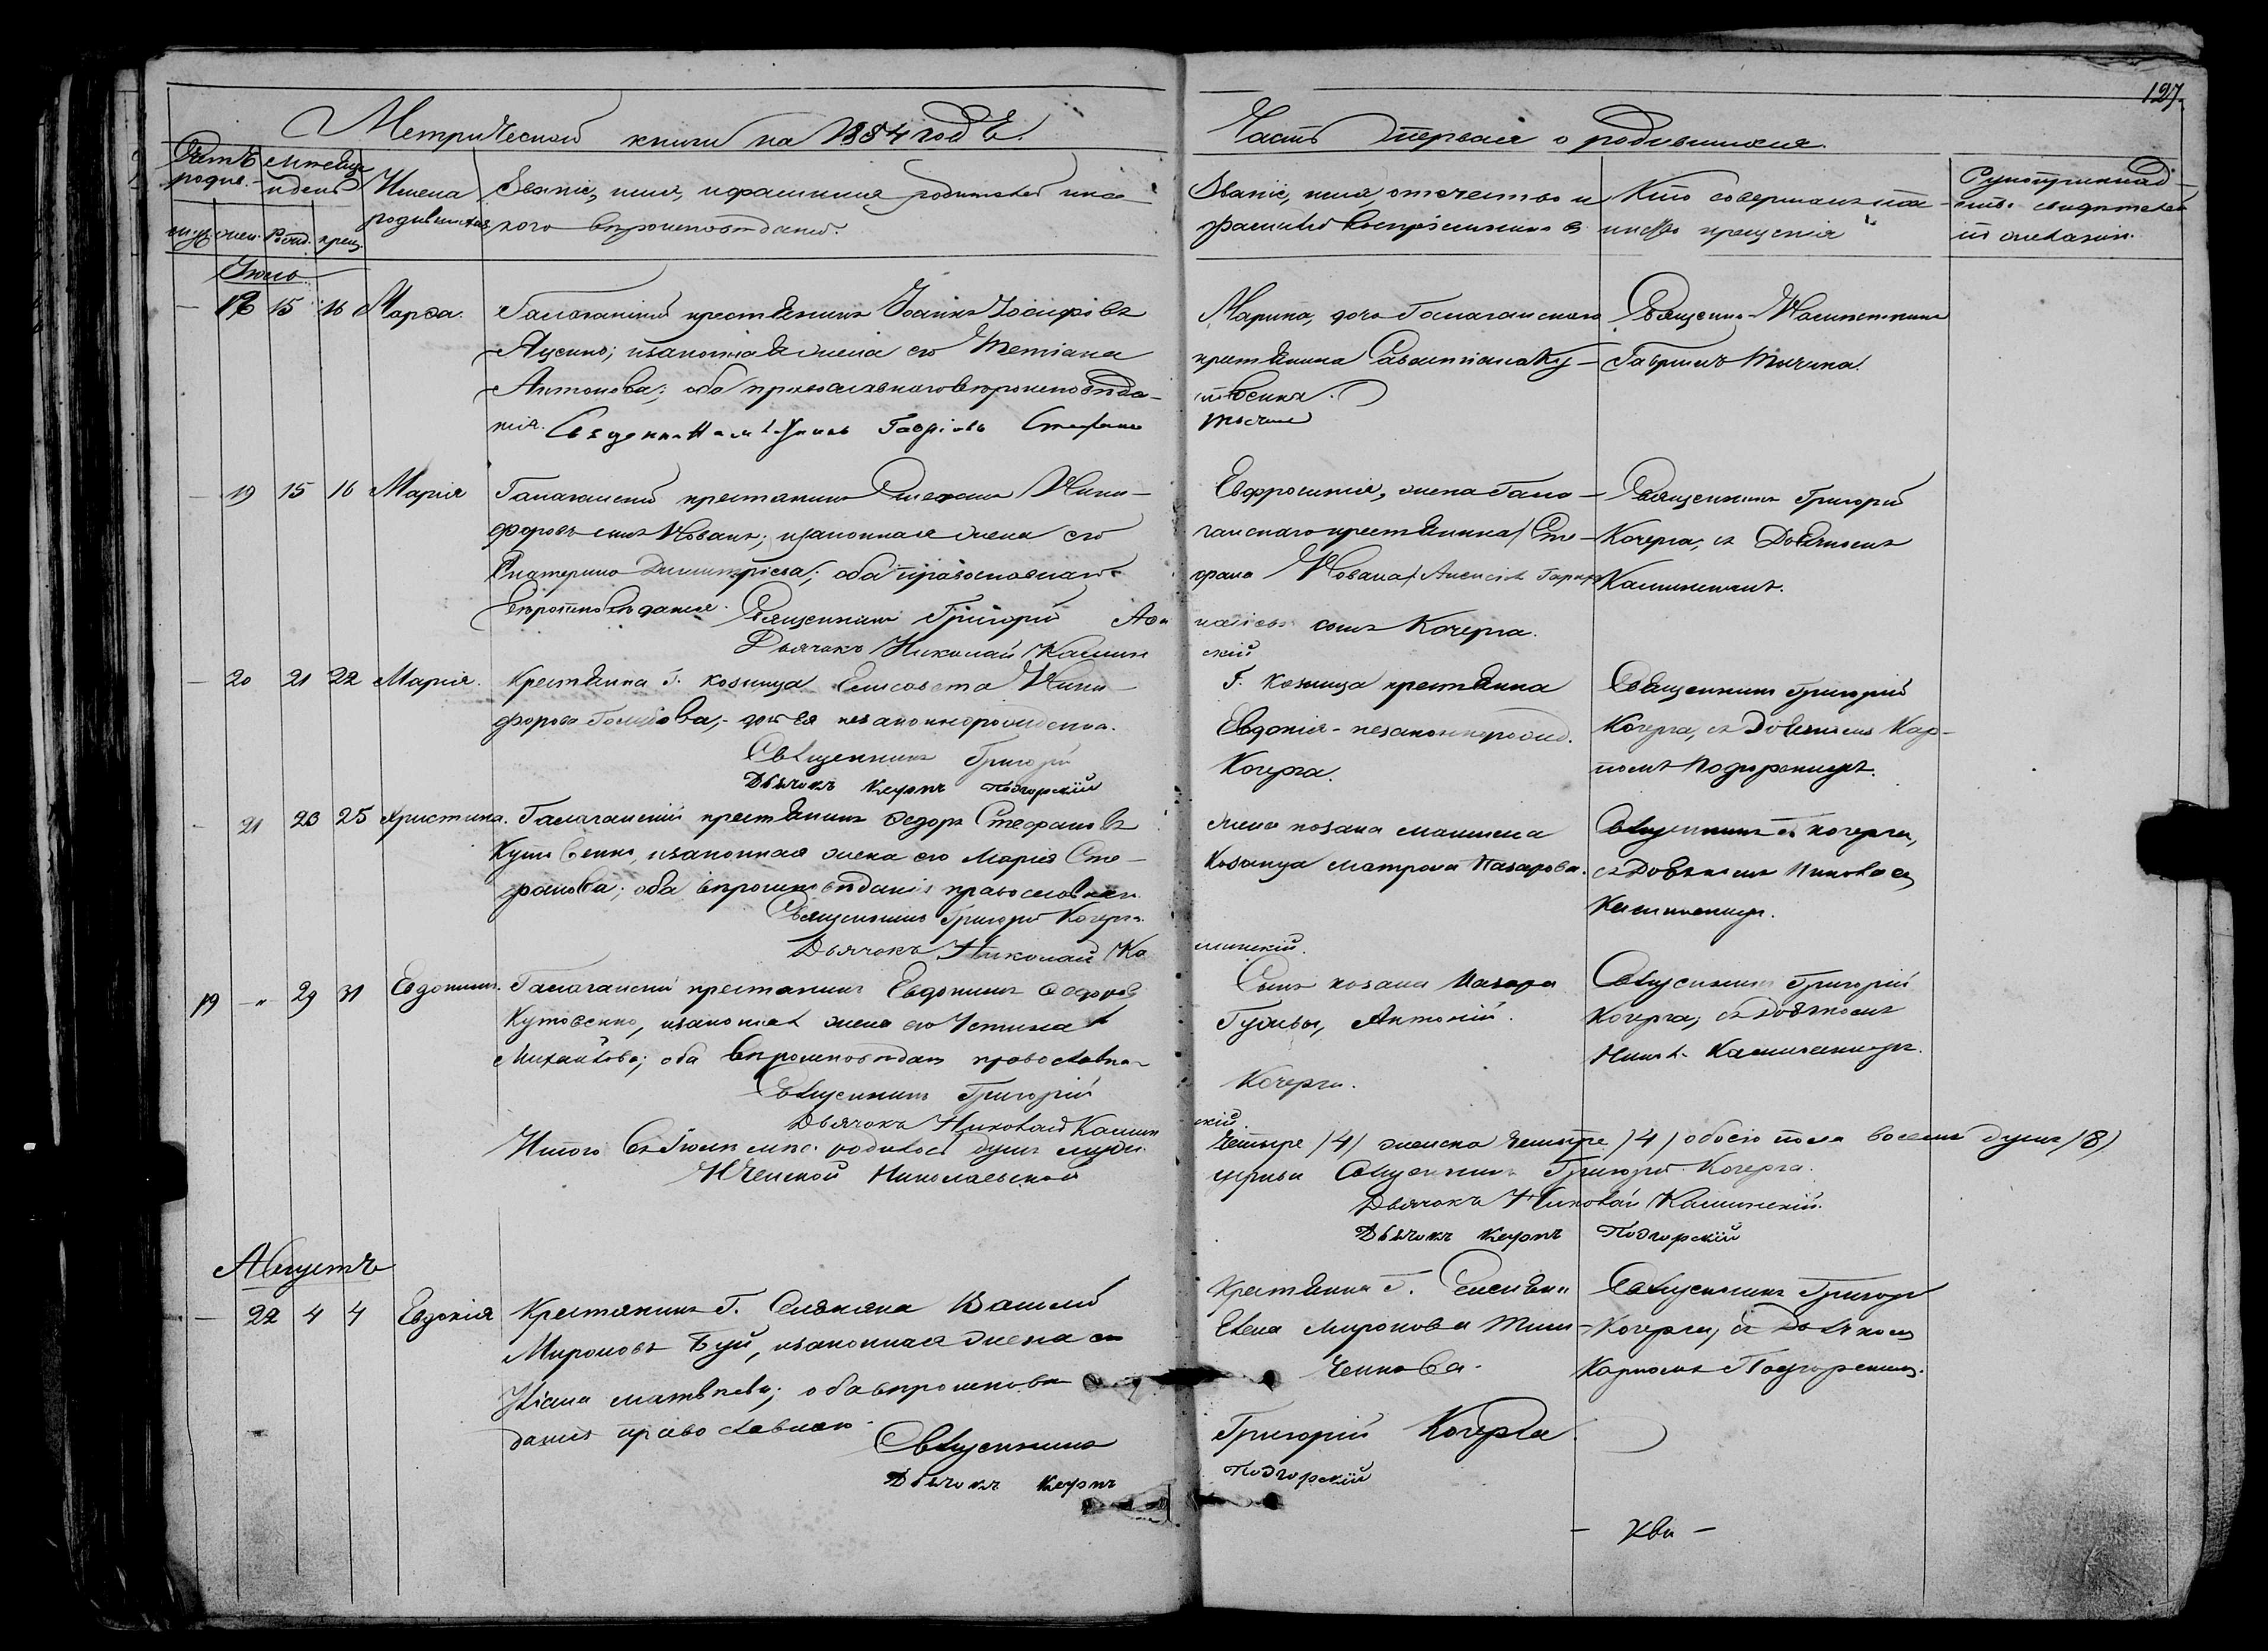 127
Метрической книги на 1884 годъ.
Часть первая о родившихся.
Счетъ родив.
Мѣсяцъ и день
Имена родившихся
Званіе, имя, и фамилия родителей и ка-
кого вѣроисповѣданія.
Званіе, имя, отечество и
фамилія воспріемниковъ
Кто совершалъ таи-
нство крещенія
Рукоприклад-
ство свидѣтелей
по желанію.
муж. жен. Рожд. крещ.
Іюль
— 18 15 16 Марѳа.
Галаганскій крестьянинъ Іоаннъ Іосифовъ
законная жена его Тетіана
Антонова; оба православнаго вѣроисповѣда-
нія. Гавріилъ Стефано
Марина, дочь Галаганскаго
крестьянина
Священно-
Гавріилъ
— 19 15 16 Марія
Галаганскій крестьянинъ Стефанъ Ники-
форовъ сынъ Кованъ; изаконная жена его
Екатерина Димитріева; оба православнаго
вѣроисповѣданія. Священникъ Григорій
Дьячокъ Николай Камин
Евфросинія, жена Гала-
ганскаго крестьянина Сте-
фана Кована
сынъ Кочерга.
скій
Священникъ Григорій
Кочерга, съ Дьячкомъ
Каминскимъ.
— 20 21 22 Марія.
Крестьянка Г. козинца Елисавета Ники-
форова дочь ея незаконнорожденная.
Священникъ Григорій
Дьячокъ Карпъ Подгорскій
Г. Козинца крестьянка
Евдокія - незаконнорожд.
Кочерга.
Священникъ Григорій
Кочерга, съ Дьячкомъ Кар-
помъ Подгорскимъ.
— 21 23 25 Христина.
Галаганскій крестьянинъ Ѳедоръ Стефановъ
Кутовенко, изаконная жена его Марія Сте-
фанова; оба вѣроисповѣданія православнаго
Священникъ Григорій Кочерга.
Дьячокъ Николай Ка
жена козака мѣстечка
Козинца Матрона Назарова.
минскій.
Священникъ Г. Кочерга,
съ Дьячкомъ Николаемъ
Каминскимъ.
19 —" 29 31 Евдокимъ.
Галаганскій крестьянинъ Евдокимъ Ѳедоровъ
Кутовенко, изаконная жена его Устина
Михайлова; оба вѣроисповѣдан православна
Священникъ Григорій
Дьячокъ Николай Камин
Сынъ козака Назара
Гужвы, Антоній.
Кочерга.
скій
Священникъ Григорій
Кочерга, съ Дьячкомъ
Никол. Каминскимъ.
Итого въ Іюлѣ мѣс. родилось душъ мужес.
четыре /4/ женска четыре /4/ обоего пола восемь душъ /8/
Николаевской
церкви Священникъ Григорій Кочерга.
Дьячокъ Николай Каминскій.
Дьячокъ Карпъ Подгорскій
Августъ
— 22 4 4 Евдокія
Крестьянинъ Г. Селянина Василій
Мироновъ Буй, изаконная жена его
Уліана Матвѣева; оба вѣроисповѣ
данія православнаго
Священникъ
Дьячокъ Карпъ
Крестьянка Г.
Елена Миронова Тим-
ченкова.
Григорій Кочерга.
Подгорскій
Священникъ Григорій
Кочерга, съ Дьячкомъ
Карпомъ Подгорскимъ.